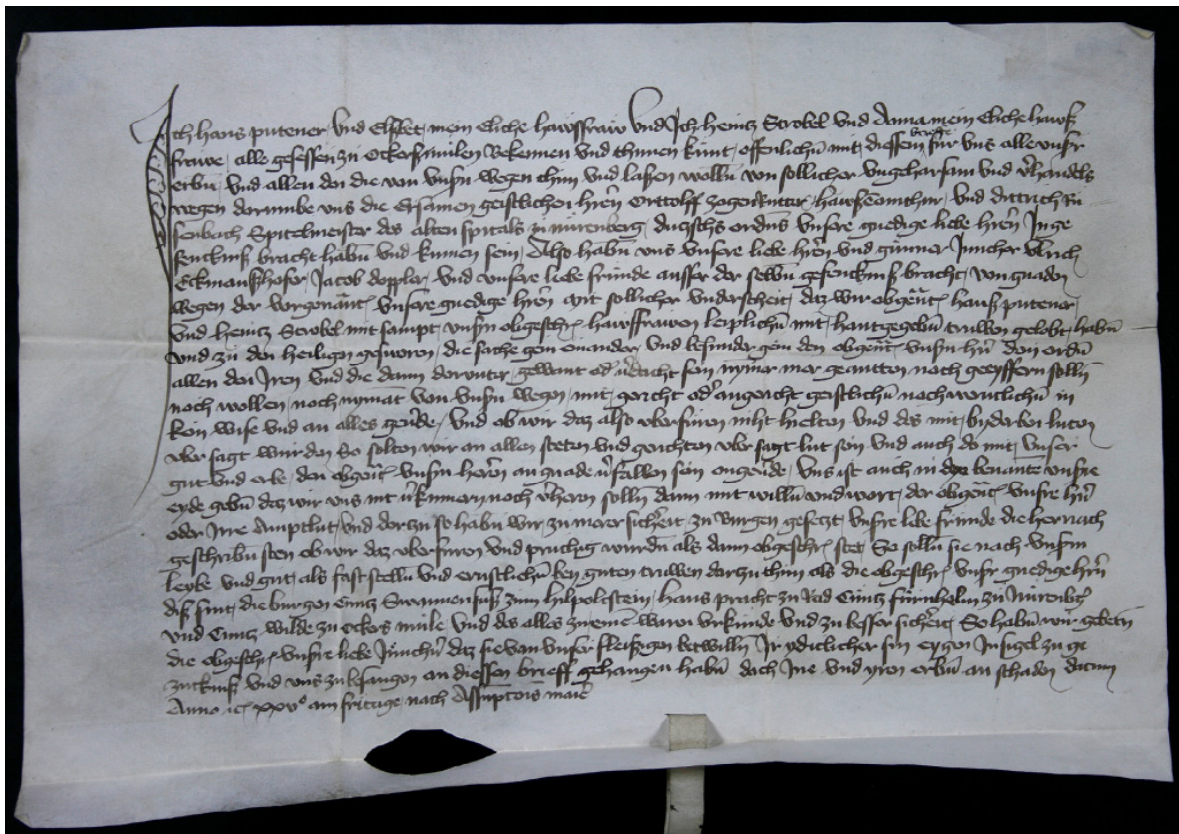 Ich hans putener und Elsbet mein Eliche hawsfraw und Ich heintz Strobel und Anna mein Eliche hawß
frawe alle gesessen zu Eckersmülen Bekennen und thunen kunt offenlichñ mit diessem briefe für uns alle unsr
erbñ und allen den die von unsrn wegen thun und lassen wollñ von sollicher ungeharsam und
wegen dorumbe uns die Ersamen geistlichen hern Orttolff zogenrutter hawßcomthur und dittrich
senbach Spitelmeister des alten spitals zu nürenberg ordens unsere gnedige liebe hern Inge
fencknuß bracht habñ und kumen sein Also habñ uns unsere liebe hern und günner Juncher Ulrich
Eckmanßhofer Jacob doppler und unsere liebe fründe ausser der selbñ gefencknuß bracht von gnaden
wegen der vorgenãt unsere gnedige hern mit sollicher underscheit daz wir obgeñt hanß putener
und heintz Strobel mit sampt unsrn obgeschr hawsfrawen leiplichñ mit hantgegebñ trüwen gelobt habñ
und zu den heiligen gesworen die sache gein einander und besunder gein den obgeñt unsrn hrñ dem ordñ
allen den Iren und die dann dorunter gewant od verdacht sein nymer mer geantten noch geeyffern sollñ
noch wollen noch nymãt von unsrn wegen mit gericht od angericht geistlichñ noch werntlichñ in
kein wise und an alles geverde und ob wir daz also uberfüren niht hielten und des mit byderben luten
uber sagt würden So solten wir an allen steten und gerichten uber sagt lut sein und auch do mit unser
gut und erbe den obgeñt unsrn hern an gnade verfallen sein ongeverde uns ist auch in benante unsre
eyde gebñ daz wir uns nit verkümern noch verhern sollñ dann mit willñ und wort der obgeñt unsre hrñ
oder Ire Amptlut und dortzu so habñ wir zu merer sicherheit zu burgen gesetzt unsre liebe fründe die hernach
geschribñ sten ob wir daz uberfuren und pruchig wurdñ als dann obgeschr stet So sollñ sie nach unsrm
leybe und gut als fast stellñ und ernstlichñ bey guten trüwen dortzu thun als die obgeschr unsr gnedige hrñ
diß sint die burgen Cuntz Swannensuß zum hilpoltstein hans pracht zu Rod Cuntz fürnhelm zu Nürenbg
und Cuntz wilde zu Eckersmüle und des alles zu einem waren urkünde und zu besser sicherheit So habñ wir gebetñ
die obgeschr unsre liebe Junchrñ daz sie von unser fleißigen bet willñ Ir yetlicher sin eygen Insigel zu ge
zucknuß und uns zu besagen an diessen brieff gehangen habñ doch Ine und yren erbñ an schaden datum
Anno ic xxv° am fritage nach Assuptois marie